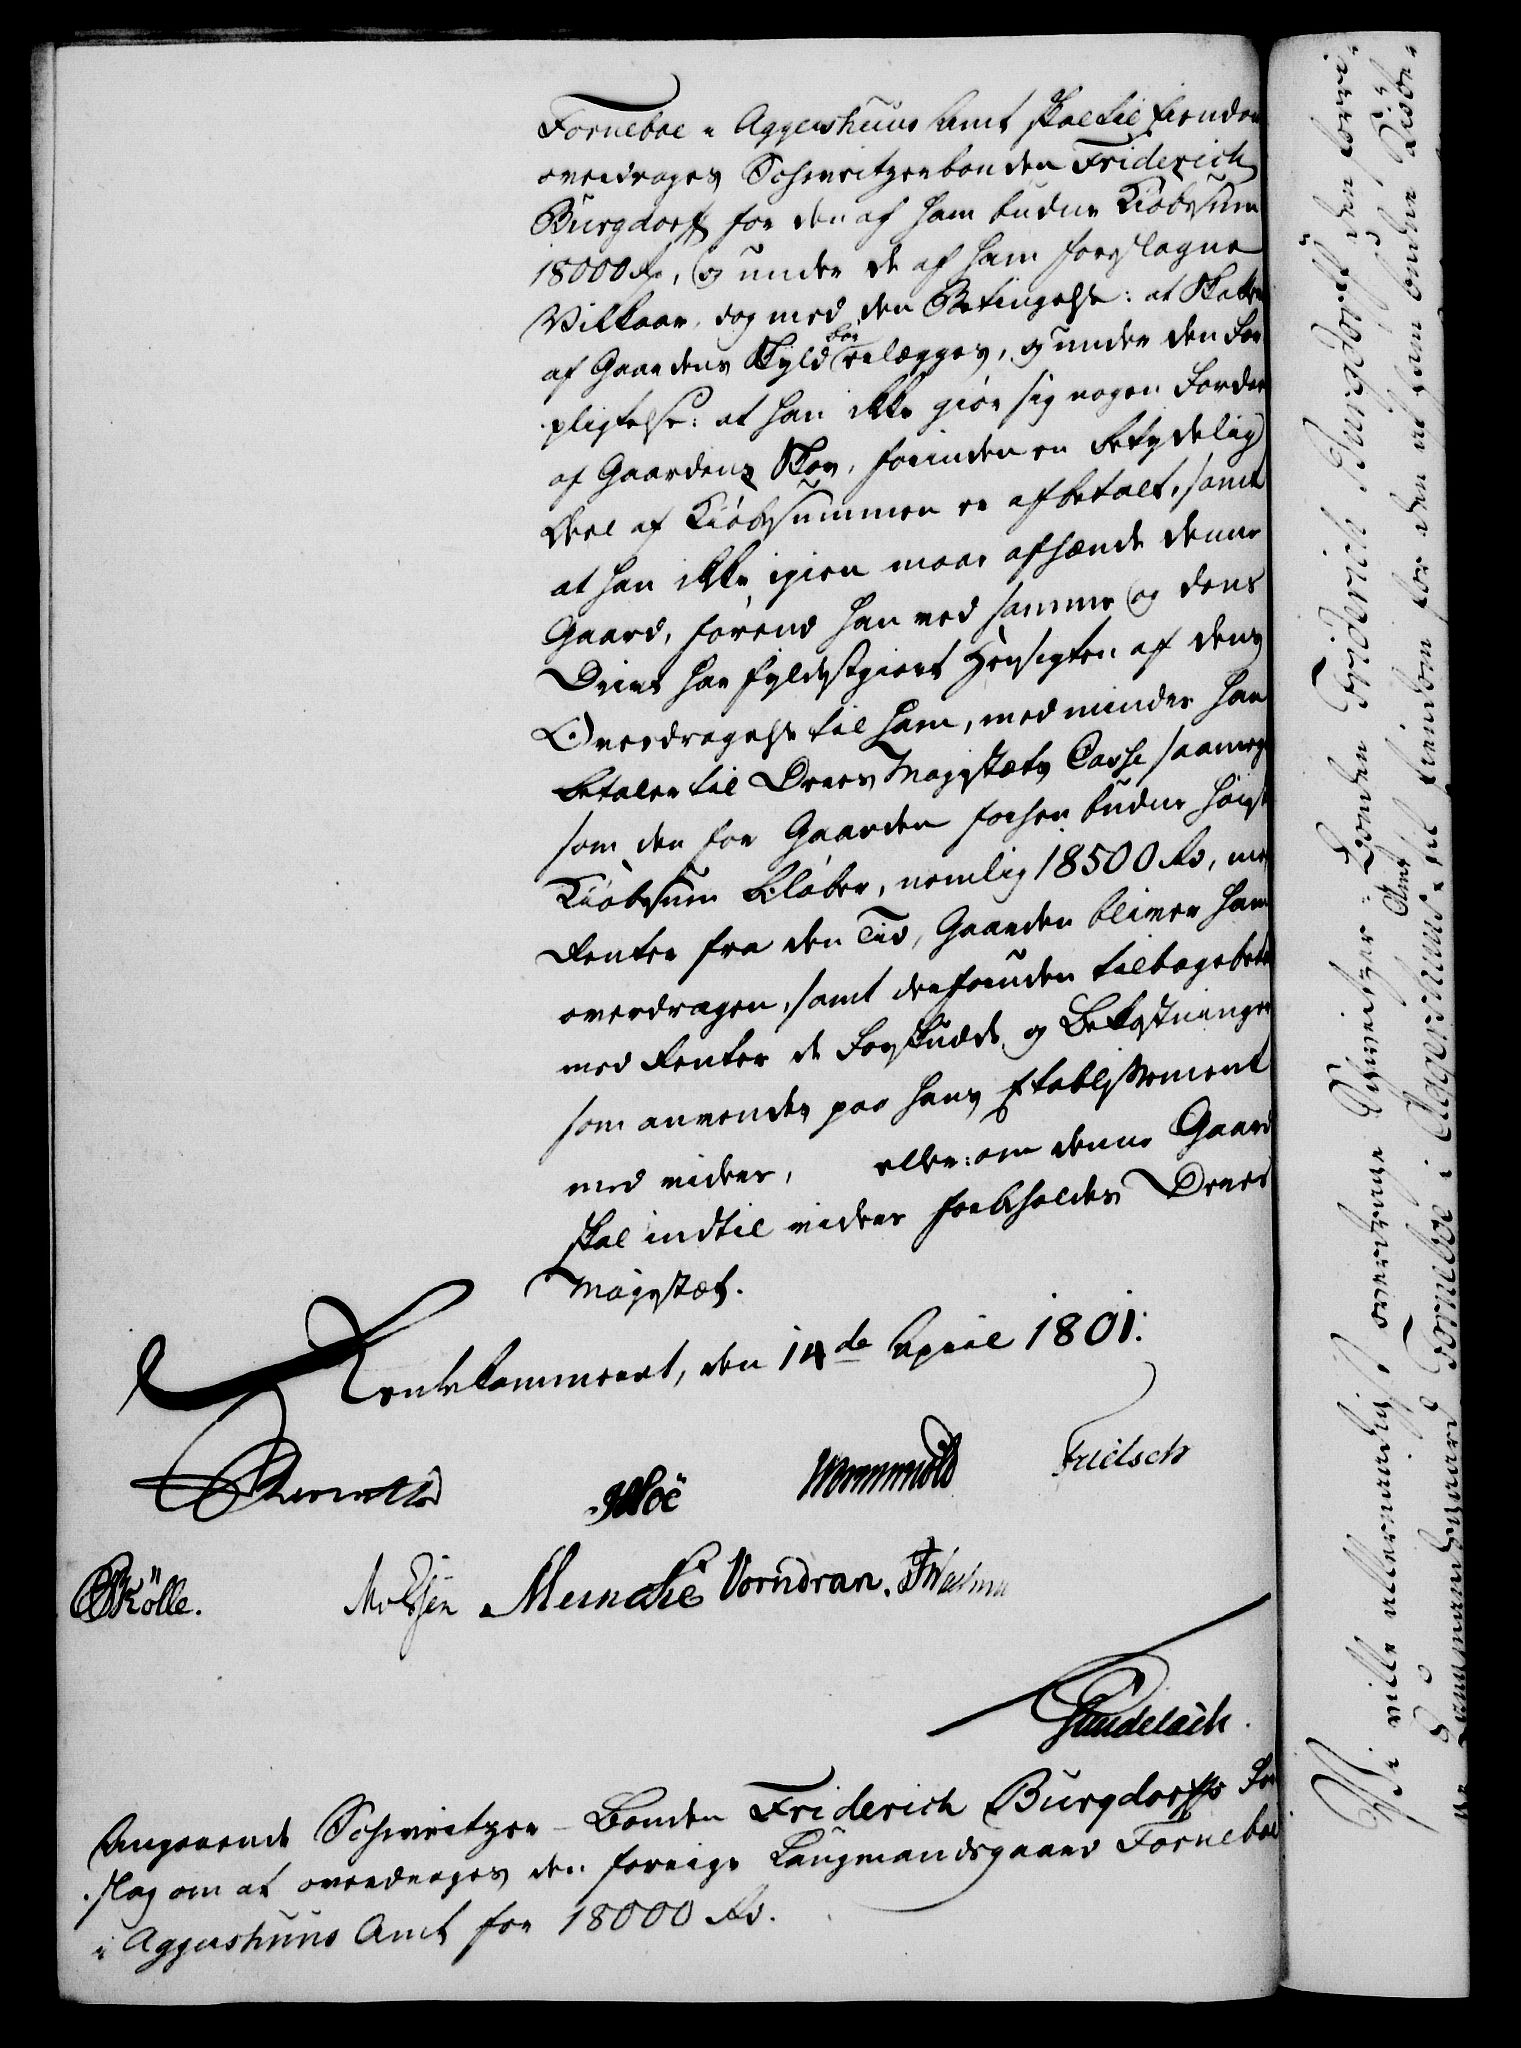 Forneboe i Aggershuus Amt skal til Eiendom
overdrages Schweitzerbonden Friderich
Burgdorff for den af ham budne Kiøbesum
18000 Rd, og under de af ham foreslagne
Vilkaar, dog med den Betingelse: at Skatten
af Gaardens Skyld bør erlægges, og under den For
pligtelse: at han ikke giør sig nogen Fordeel
af Gaardens Skov, forinden en betydelig
Deel af Kiøbesummen er afbetalt, samt
at han ikke igien maae afhænde denne
Gaard, førend han ved samme og dens
Drivt har fyldestgiort Hensigten af dens
Overdragelse til ham, med mindre han
betaler til Deres Majestæts Casse saameget
som den for Gaarden forhen budne høieste
Kiøbesum beløber, nemlig 18500 Rd, med
Renter fra den Tid, Gaarden bliver ham
overdragen, samt desforuden tilbagebetaler
med Renter de Forskudde og Bekostninger
som anvendes paa hans Etablissement
med videre, eller: om denne Gaard
skal indtil videre forbeholdes Deres
Majestæt.
Rentekammeret, den 14de April 1801.
Wormskiold Fritsch
Rölle. Meincke Vorndran.
Gundelach.
Angaaende Schweitzer-Bonden Friderich Burgdorffs For
slag om at overdrages den forrige Laugmandsgaard Forneboe
i Aggershuus Amt for 18000 Rd.
Vi ville allernaadigst overdrage Schweitzer-Bonden Friderich Burgdorff den forri-
ge Laugmandsgaard Forneboe i Aggershuus Amt til Eiendom for den af ham budne Kiøbe-